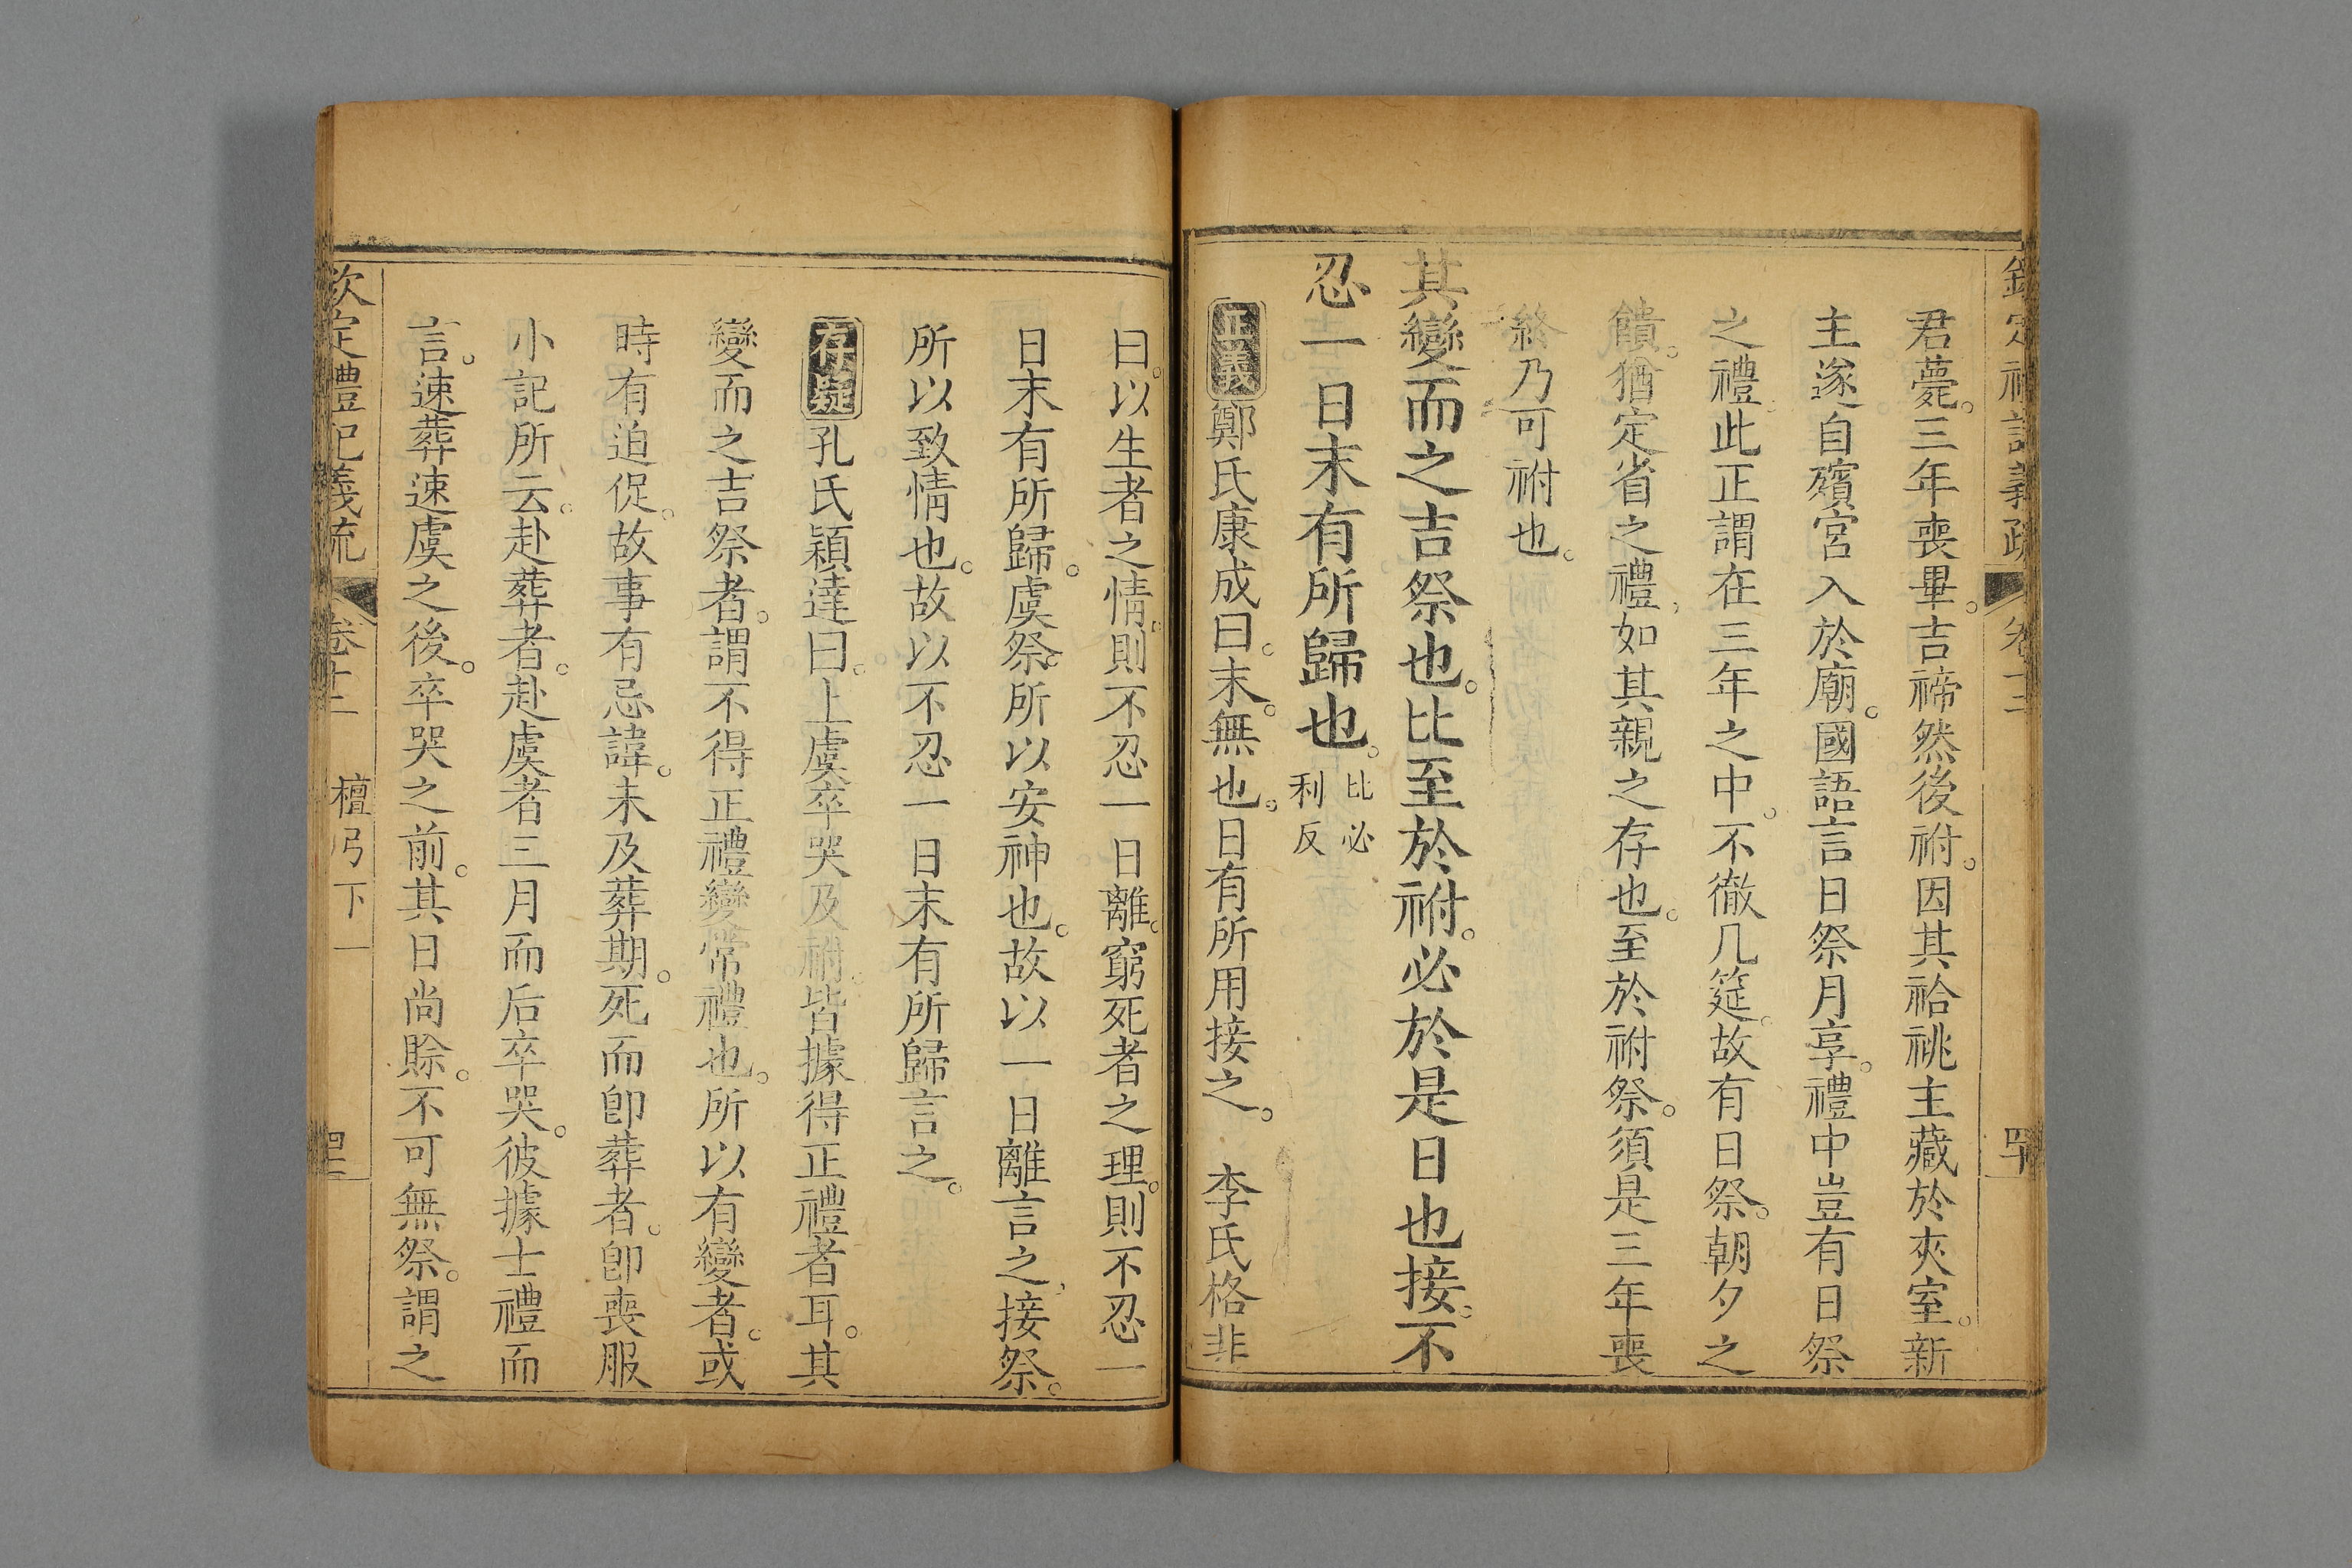 欽定禮記義疏 卷十二 罕
君薨。三年喪畢。吉禘然後祔。因其祫祧主藏於夾室。新
主遂自殯宮入於廟。國語言日祭月享。禮中豈有日祭
之禮。此正謂在三年之中。不徹几筵。故有日祭。朝夕之
饋。猶定省之禮。如其親之存也。至於祔祭。須是三年喪
終乃可祔也。
其變而之吉祭也。比至於祔。必於是日也接。不
忍一日末有所歸也。比必利反
正義鄭氏康成曰。末。無也。日有所用接之。 李氏格非
曰。以生者之情。則不忍一日離。窮死者之理。則不忍一
日末有所歸。虞祭。所以安神也。故以一日離言之。接祭。
所以致情也。故以不忍一日末有所歸言之。
存疑孔氏穎達曰。上虞卒哭及祔。皆據得正禮者耳。其
變而之吉祭者。謂不得正禮變常禮也。所以有變者。或
時有迫促。故事有忌諱。未及葬期。死而卽葬者。卽喪服
小記所云。赴葬者。赴虞者三月而后卒哭。彼據士禮而
言。速葬速虞之後。卒哭之前。其日尚賒。不可無祭。謂之
欽定禮記義疏 卷十二 檀弓下一